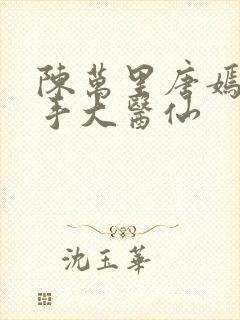 陳萬里唐嫣
手大醫仙
沈玉華